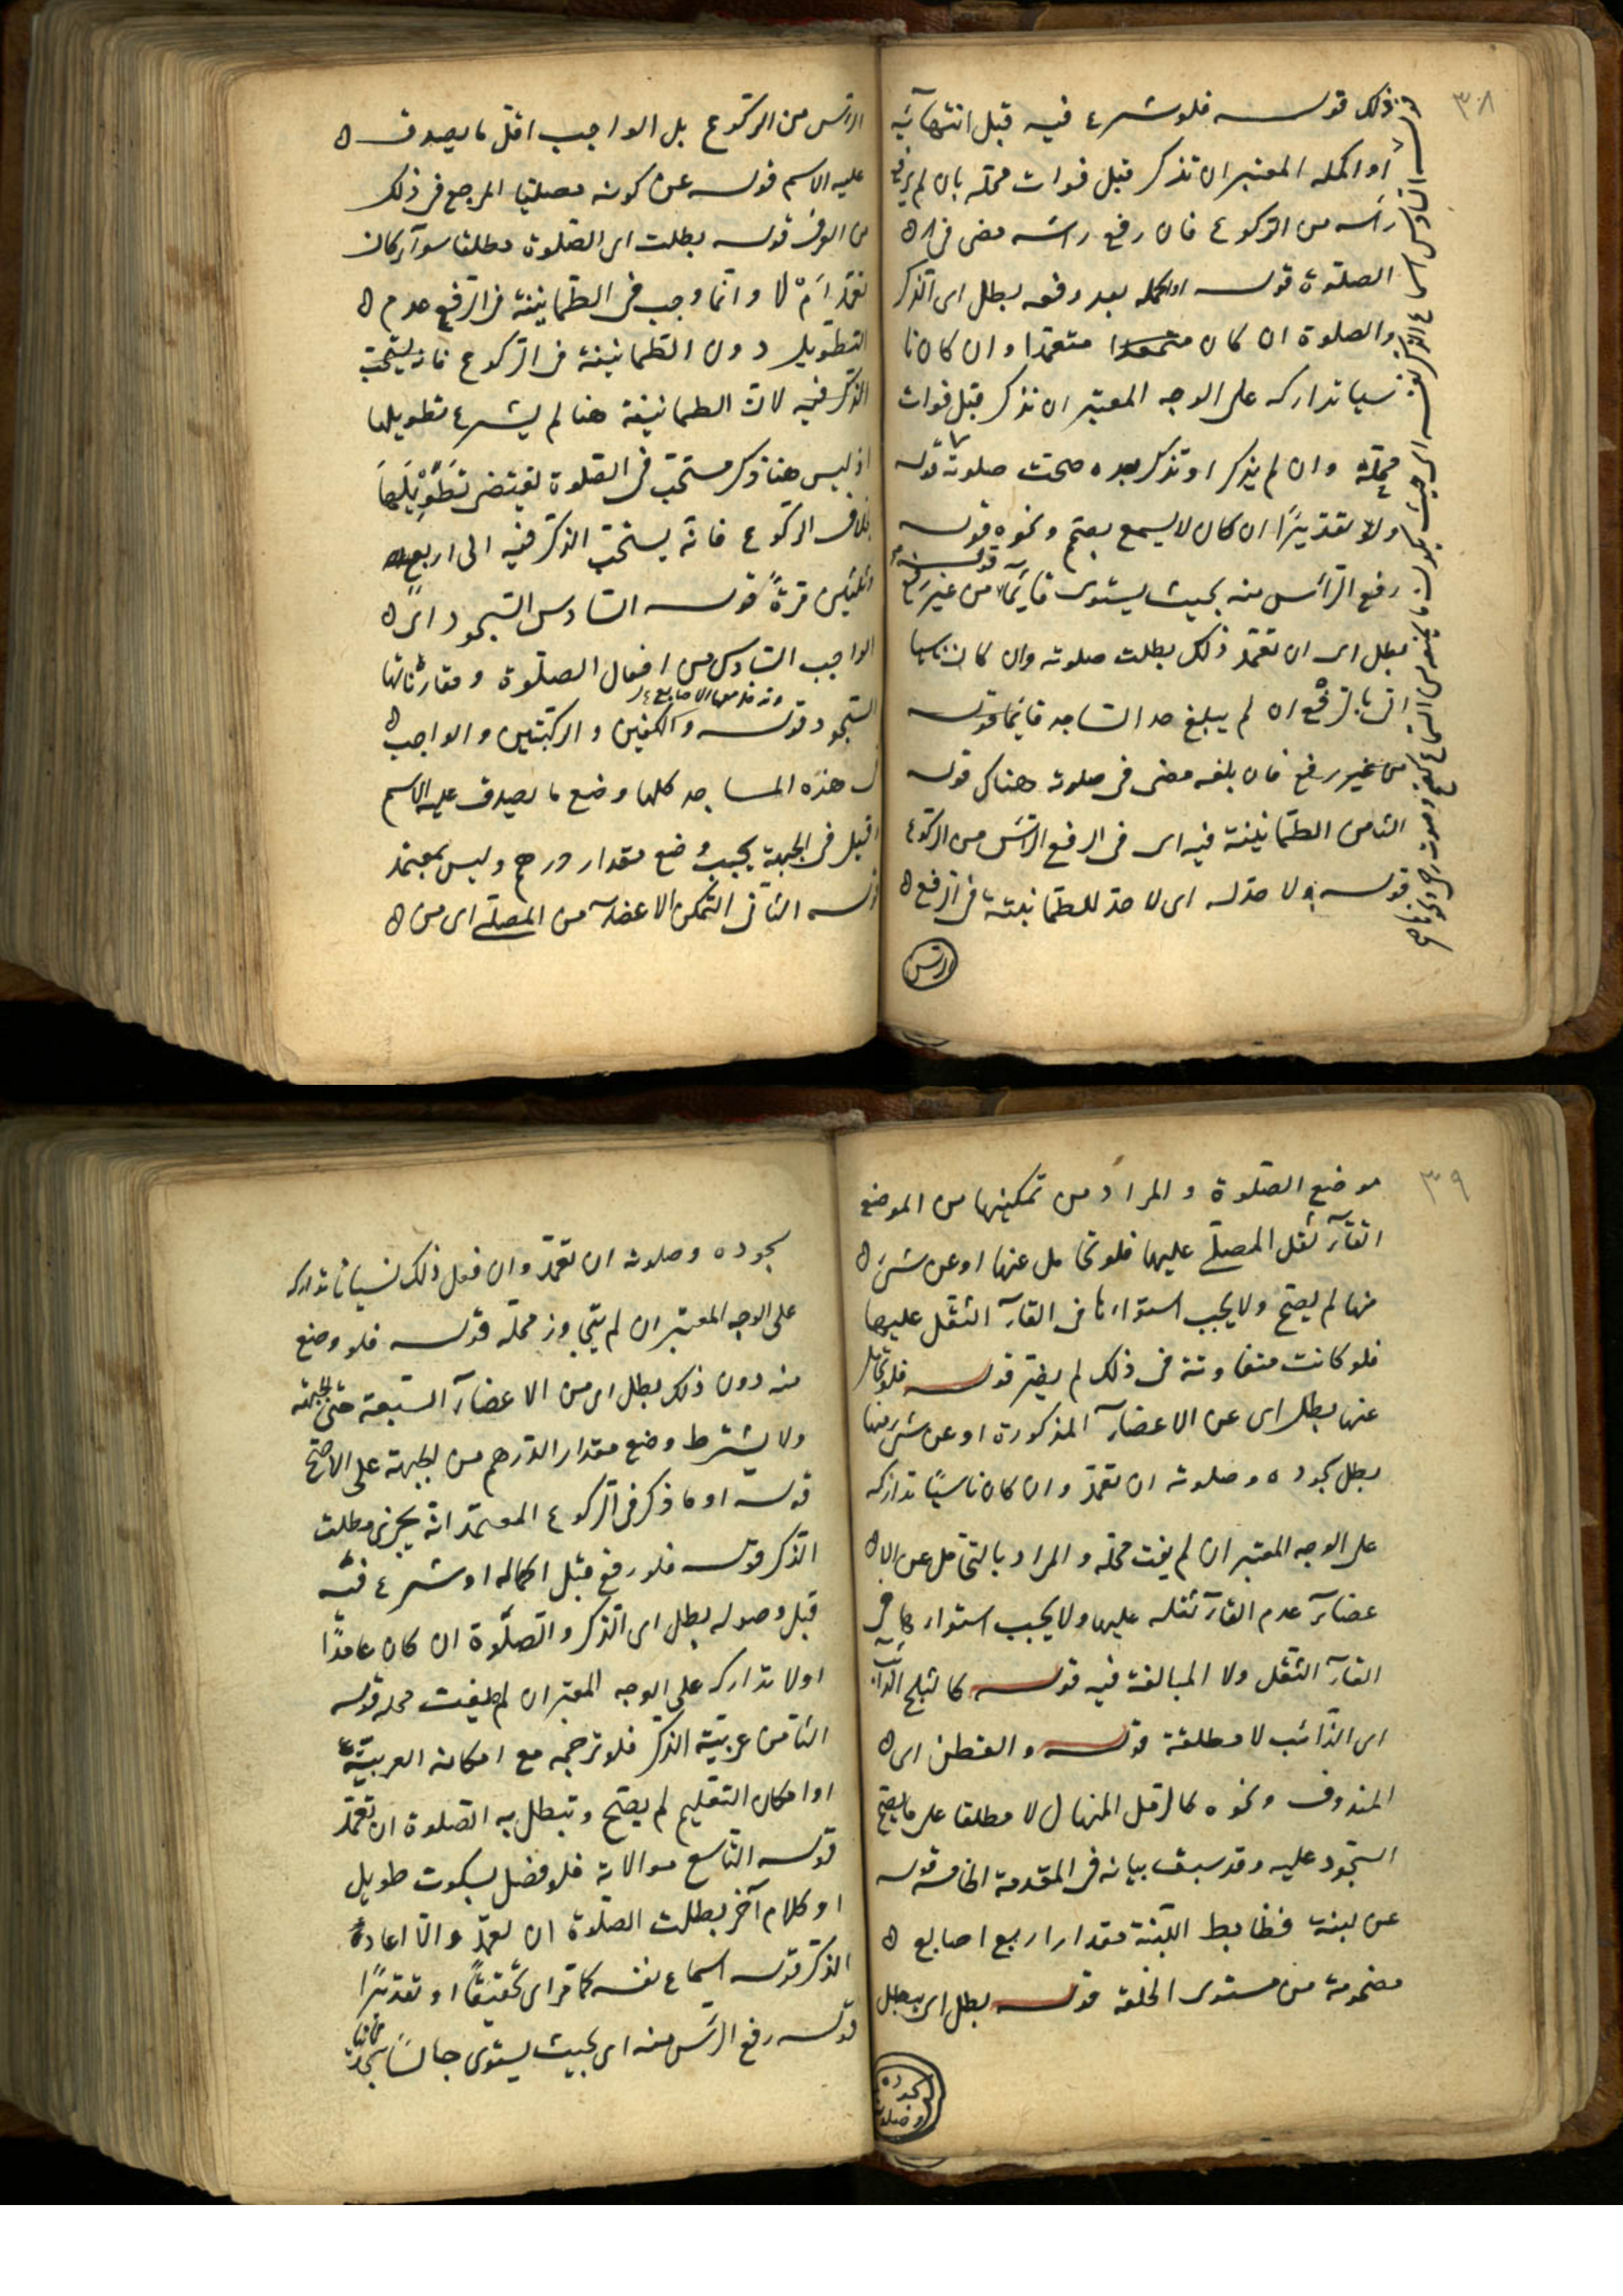 ٣٠٨
ذلك قوله فلو شرع فيه قبل انتهائه
او اكمله المعتبر ان تذكر قبل فوات محله بان لم يرفع
راسه من الركوع فان رفع راسه مضى فى
الصلوة قوله او اكمله بعد رفعه بطل اى الذكر
والصلوة ان كان متعمدا وان كان نا
سيا تداركه على الوجه المعتبر ان تذكر قبل فوات
محله وان لم يذكر او تذكر بعده صحت صلوته قوله
ولو تقديرًا ان كان لا يسمع بصمم ونحوه قوله
رفع الرأس منه بحيث يستوى قائمًا قوله من غير رفع
بطل اى ان تعمد ذلك بطلت صلوته وان كان ناسيا
اتى بالرفع ان لم يبلغ حد الساجد قائما قوله
من غير رفع فان بلغه مضى فى صلوته هناك قوله
الثامن الطمانينة فيه اى فى الرفع الرأس من الركوع
قوله ولا حد له اى لا حد للطمانينة فى الرفع
الرأس
قوله السادس اسماع الذكر نفسه اى بحيث يكون
الرأس من الركوع بل الواجب اقل ما يصدق
عليه الاسم قوله عن كونه مصليا المرجع فى ذلك
من العرف قوله بطلت اى الصلوة مطلقا سوآء كان
تعمد اَمْ لا وانما وجب فى الطمانينة فى الرفع عدم
التطويل دون الطمانينة فى الركوع فانه يستحب
الذكر فيه لان الطمانينة هنا لم يشرع تطويلها
اذ ليس هنا ذكر مستحب فى الصلوة يقتضى تطويلها
بخلاف الركوع فانه يستحب الذكر فيه الى اربع
وثلثين مرةً قوله السادس السجود اى
الواجب السادس من افعال الصلوة ومقارناتها
السجود قوله والكفين والركبتين والواجب
هذه المساجد كلها وضع ما يصدق عليه الاسم
وقيل فى الجبهة يجب وضع مقدار درهم وليس بمعتمد
قوله الثانى التمكن الاعضاء من المصلى اى من
٣٠٩
موضع الصلوة والمراد من تمكينها من الموضع
القآء ثقل المصلى عليها فلو تحامل عنها او عن شئ
منها لم يصح ولا يجب استواءها فى القآء الثقل عليها
فلو كانت متفاوتة فى ذلك لم يضر قوله فلو تحامل
عنها بطل اى عن الاعضآء المذكورة او عن شئ منها
بطل سجوده وصلوته ان تعمد وان كان ناسيًا تداركه
على الوجه المعتبر ان لم يفت محله والمراد بالتحامل عن الا
عضآء عدم القآء ثقله عليها ولا يجب استواءها فى
القآء الثقل ولا المبالغة فيه قوله كالثلج الذائب
اى الذائب لا مطلقه قوله والقطن اى
المندوف ونحوه كالرمل المنهال لا مطلقا على ما يصح
السجود عليه وقد سبق بيانه فى المقدمة الخامسة قوله
عن لبنة فضابط اللبنة مقدار اربع اصابع
مضمومة من مستوى الخلقة قوله بطل اى يبطل
سجوده وصلوته
سجوده وصلوته ان تعمد وان فعل ذلك نسيانا تداركه
على الوجه المعتبر ان لم يتجاوز محله قوله فلو وضع
منه دون ذلك بطل اى من الاعضآء السبعة حتى الجبهة
ولا يشترط وضع مقدار الدرهم من الجبهة على الاصح
قوله او ما ذكر فى الركوع المعتمد انه يجزى مطلق
الذكر قوله فلو رفع قبل اكماله او شرع فيه
قبل وصوله بطل اى الذكر والصلوة ان كان عامدًا
اولا تداركه على الوجه المعتبر ان لم يفت محله قوله
الثامن عربية الذكر فلو ترجمه مع امكانه العربية
او امكان التعليم لم يصح وتبطل به الصلوة ان تعمد
قوله التاسع موالاته فلو فصل بسكوت طويل
او كلام آخر بطلت الصلوة ان تعمد والا اعاد
الذكر قوله اسماع نفسه كما مر اى تحقيقًا او تقديرًا
قوله رفع الرأس منه اى بحيث يستوى جالسًا